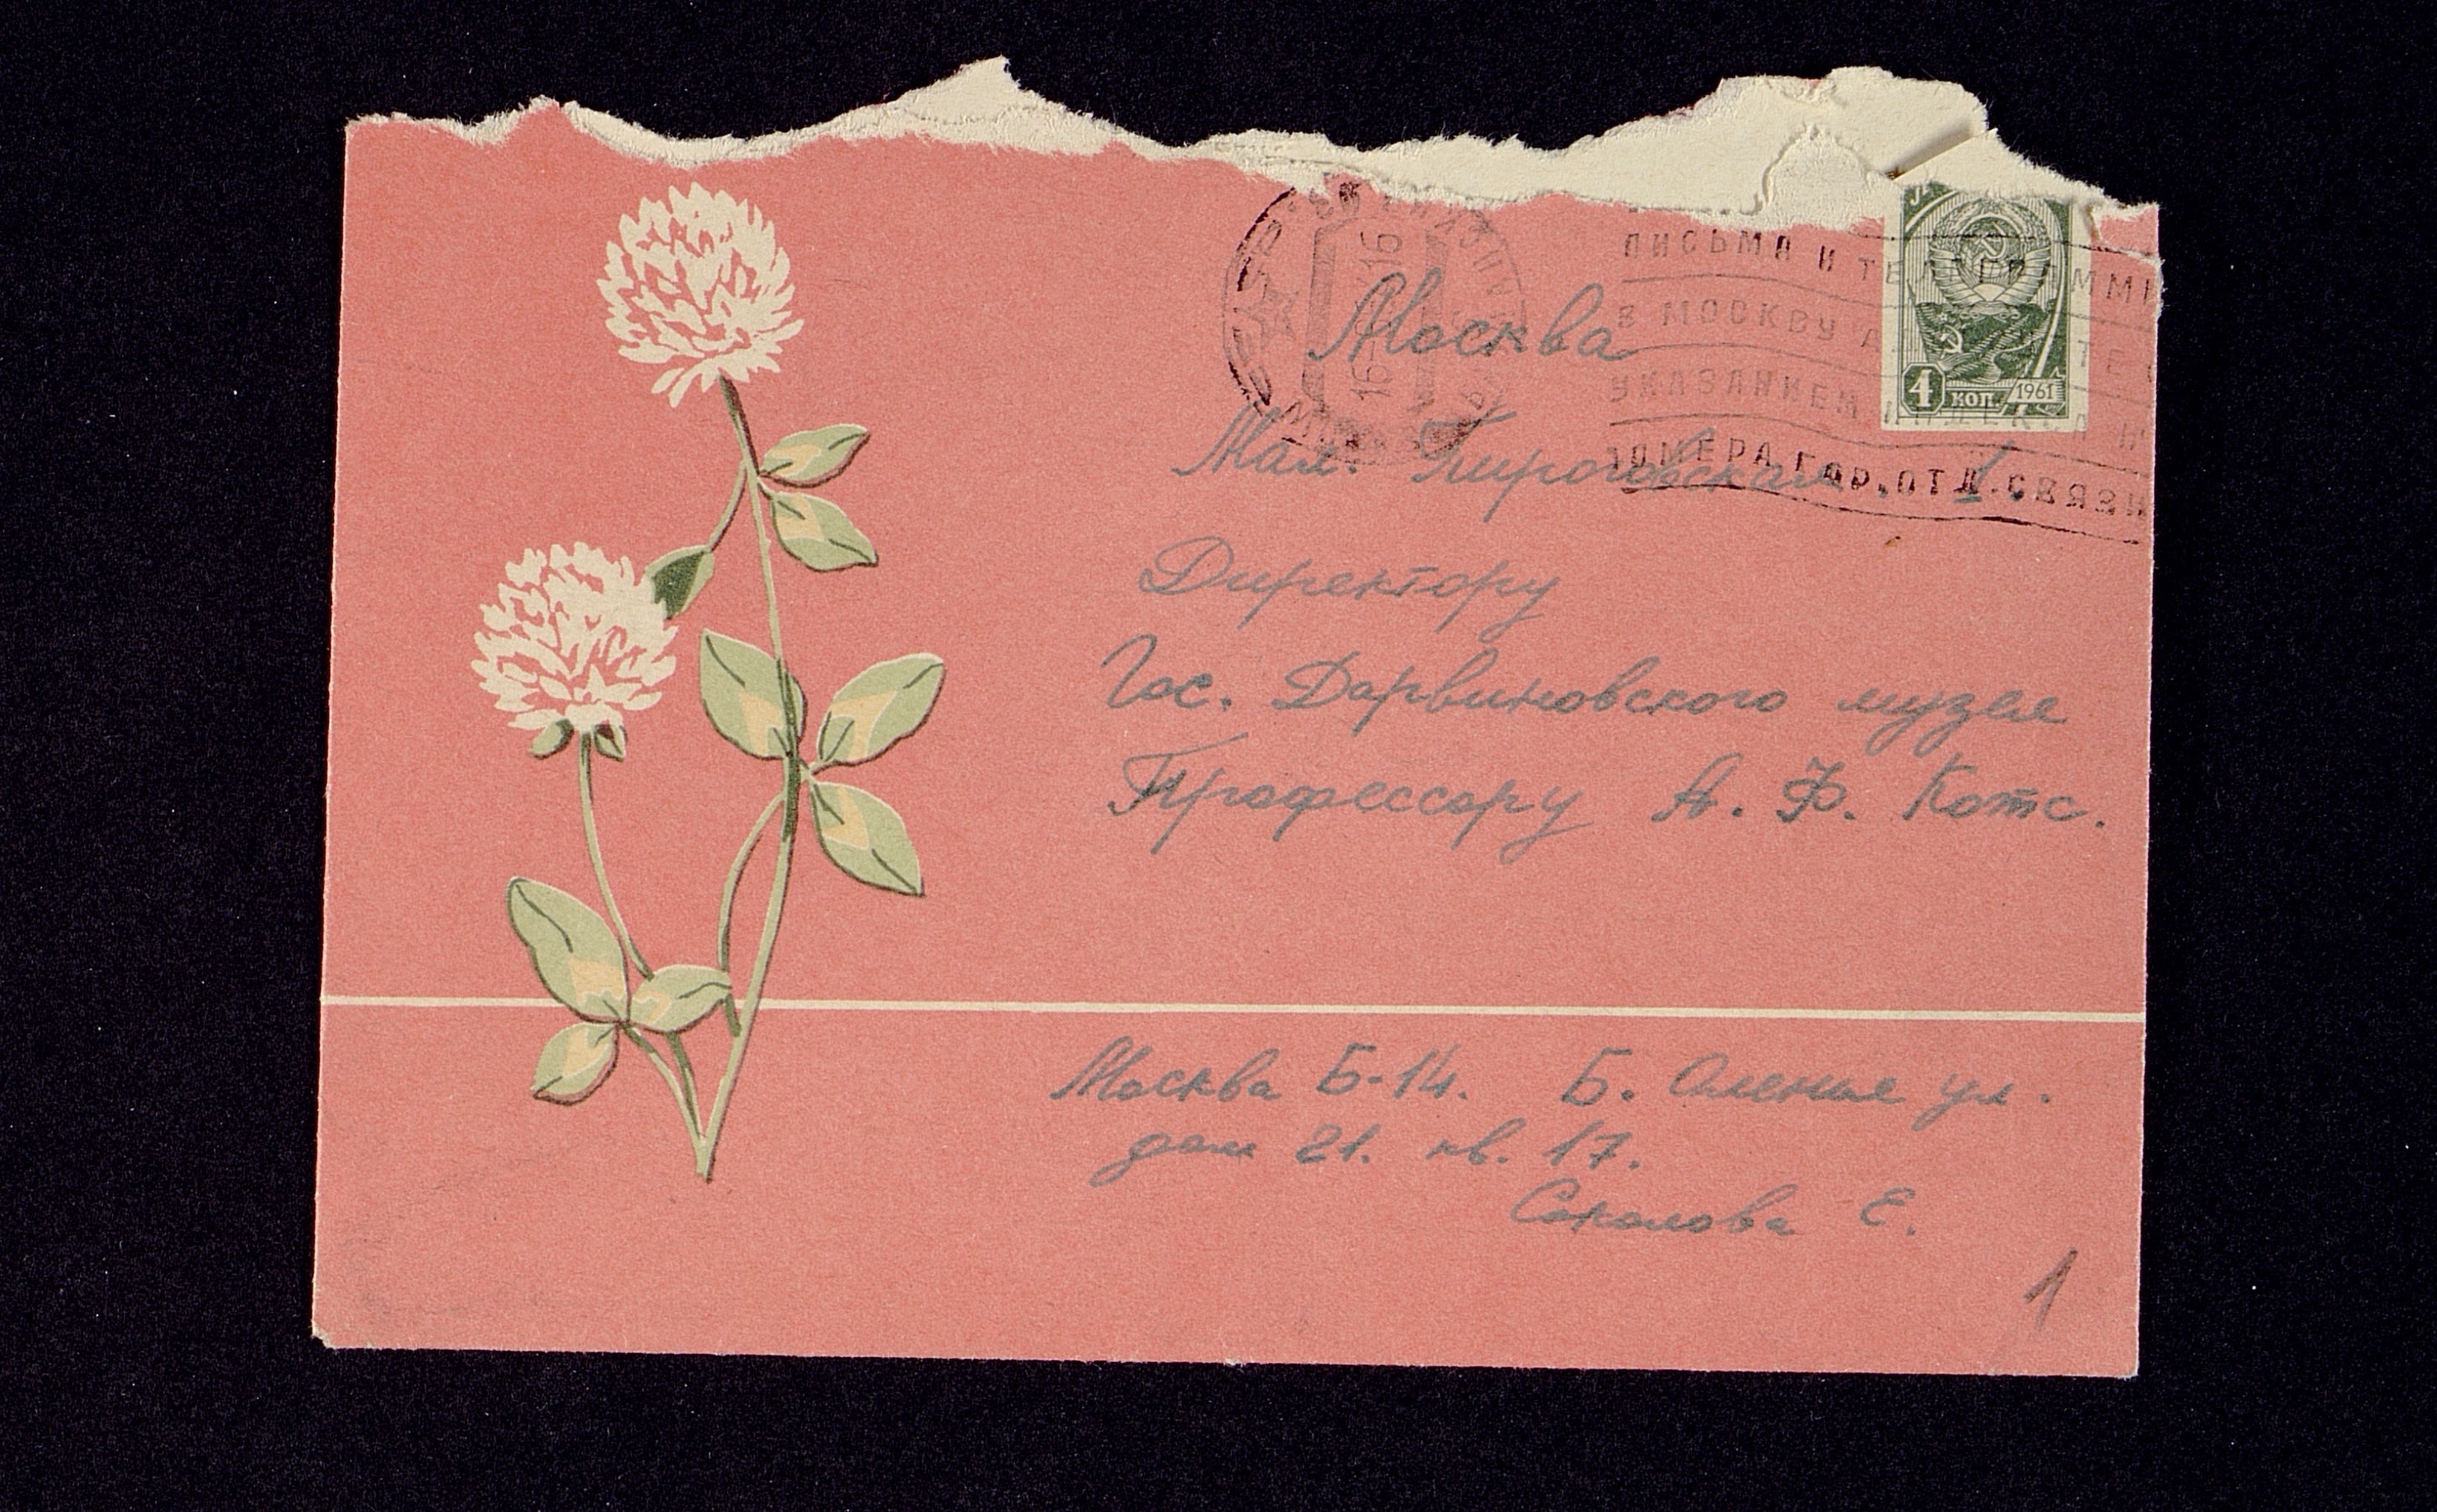 Москва
Мал. Пироговская, 1.
Директору
Гос. Дарвиновского музея
Профессору А. Ф. Котс.
Москва Б-14. Б. Оленья ул.
дом 21. кв. 17.
Соколова Е.
1
ПИСЬМА И ТЕЛЕГРАММЫ
В МОСКВУ
УКАЗАНИЕМ
НОМЕРА ГОР. ОТД. СВЯЗИ
16
4 КОП. 1961